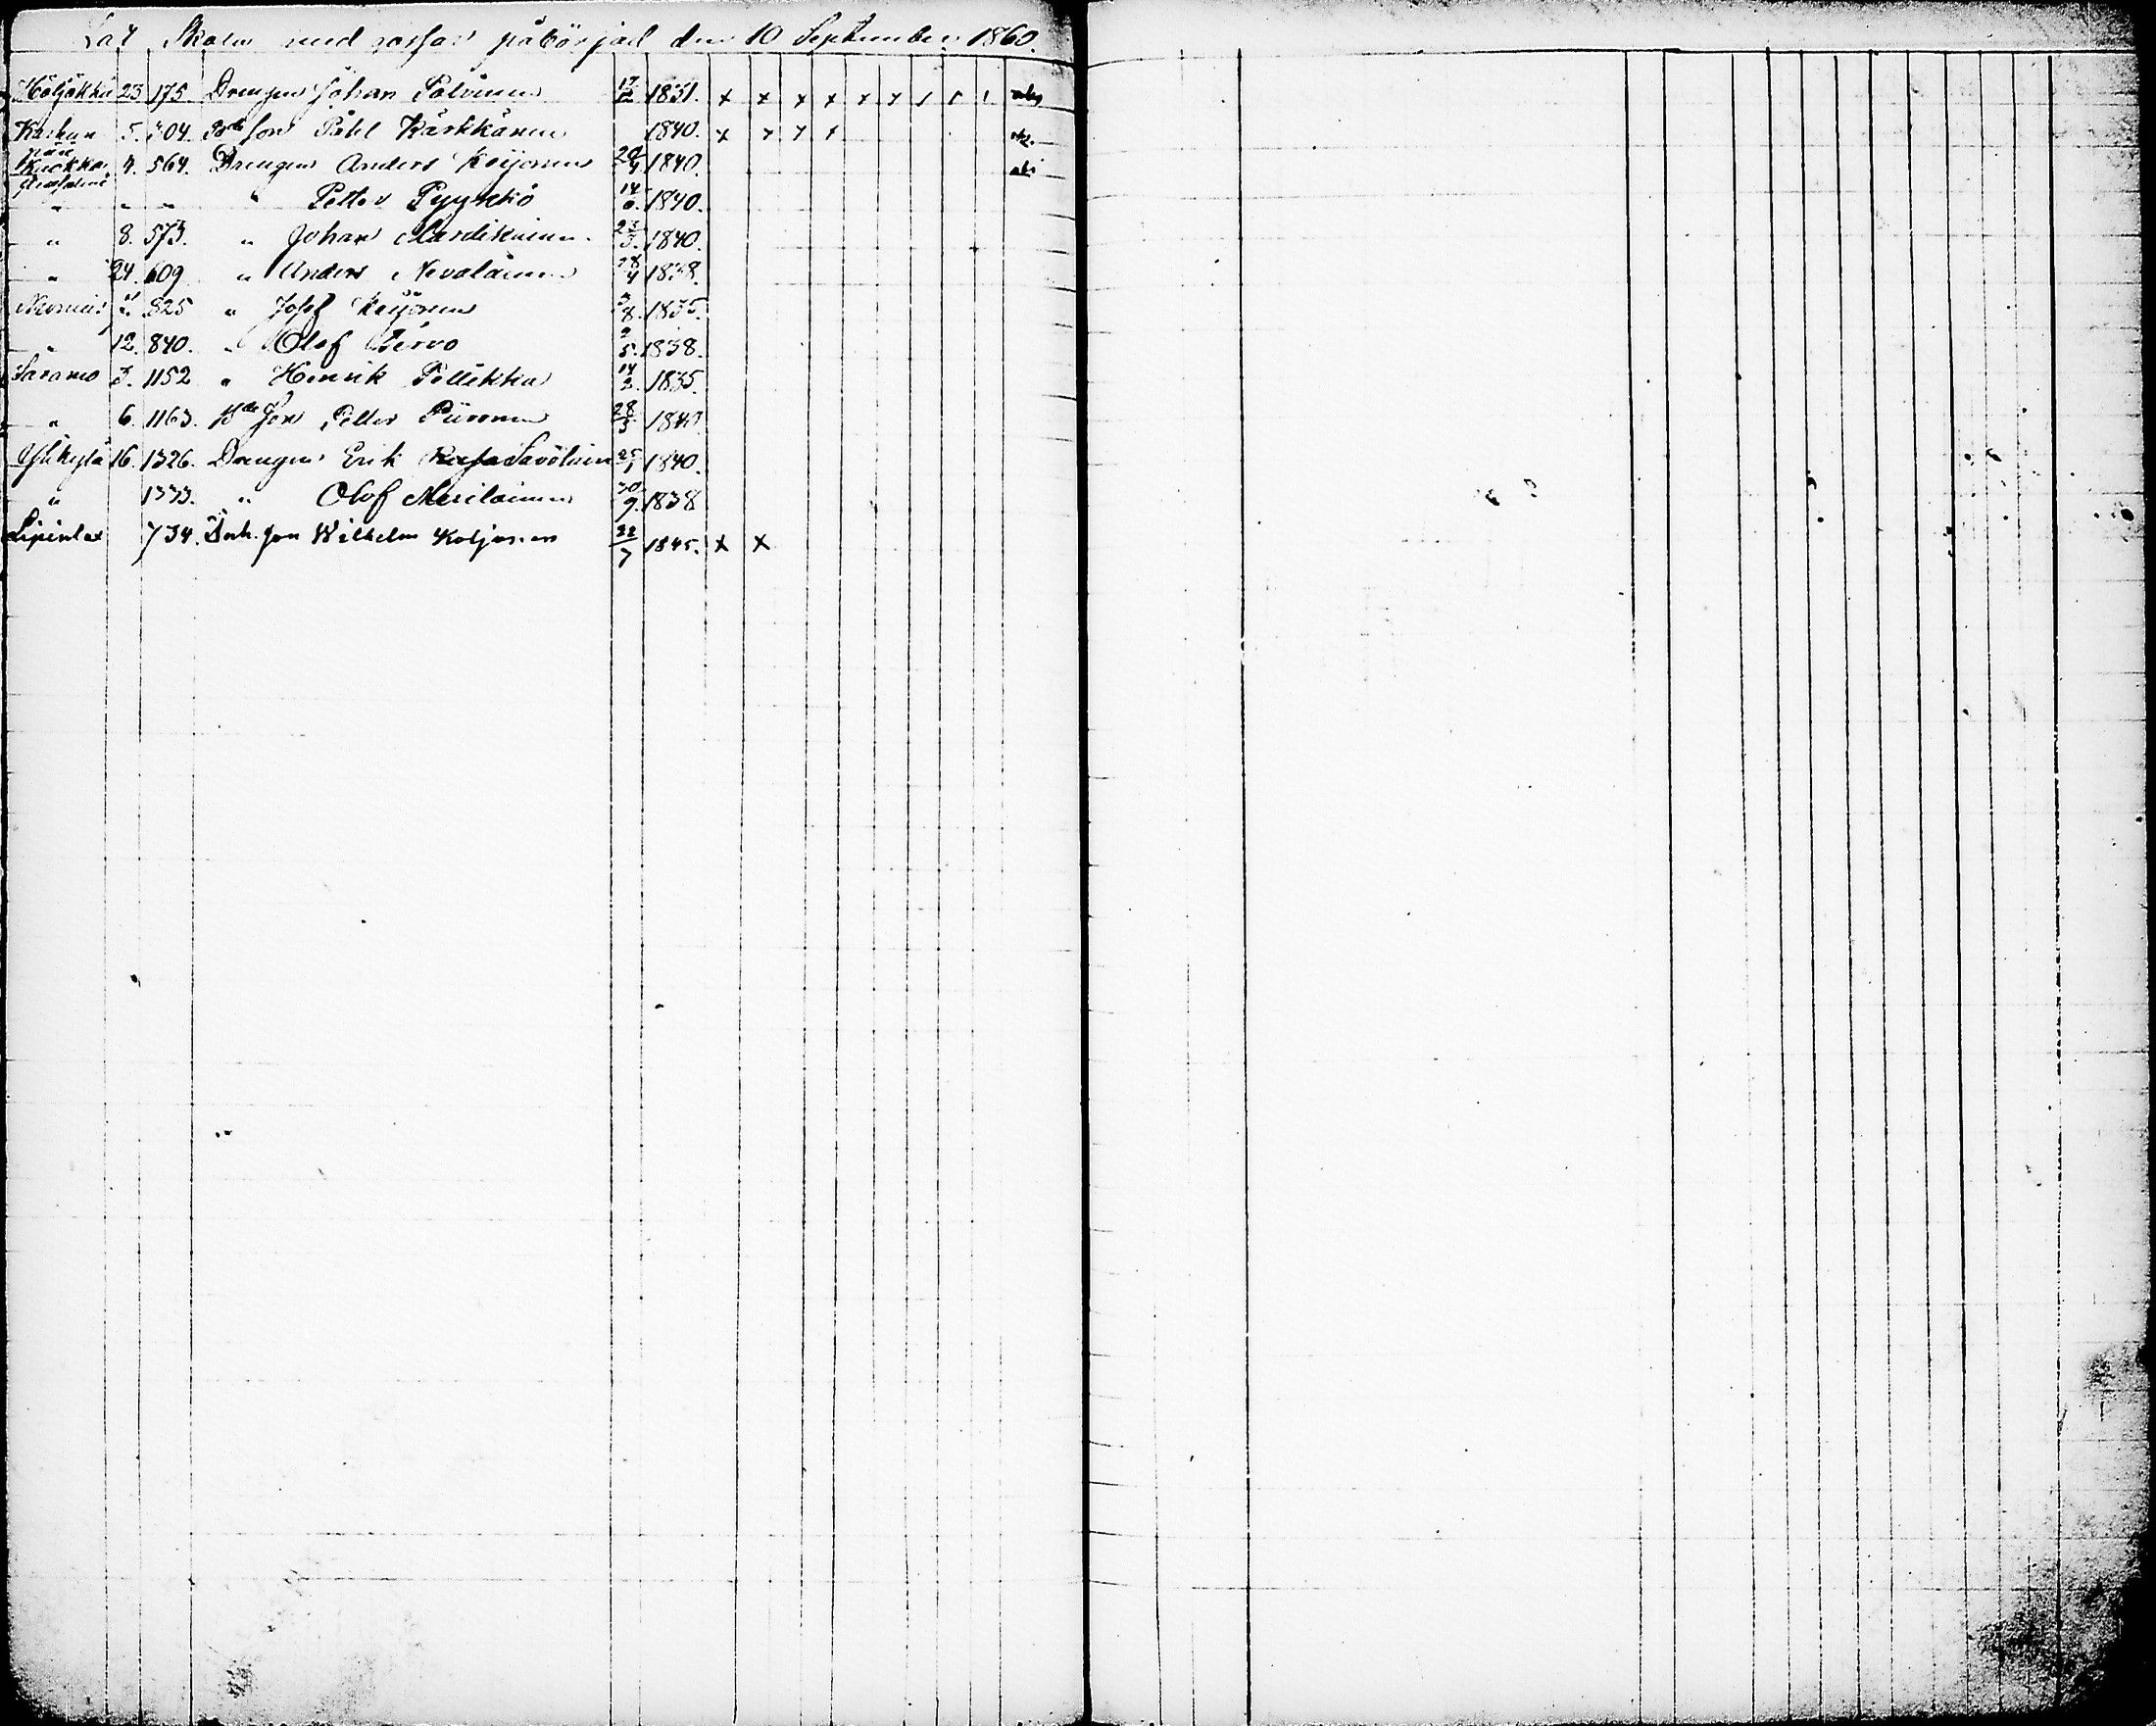 Skolan med gossar påbörjad den 10 September 1860.
Höljäkkä 23 175 Drengen Johan Palvinen 17/12 1831. x x x x x x abs
5. 304. Son Påhl Kärkkäinen 1840. x x x x
Kuokka 4. 564. Drengen Anders Keijonen 28/4 1840. abs
" " " " Petter Pyykkö 14/6. 1840.
" 8. 573. " Johan Mandikainen 23/3. 1840.
" 24. 609 " Anders Nevalainen 28/4 1838.
2. 825 " Josef Keijonen 3/8. 1835.
" 12. 840. " Olof Tervo 9/5. 1838.
Saramo 3. 1152 " Henrik Pellikka 14/2. 1835.
" 6. 1163. Son Petter Piironen 28/5 1840
Ylikylä 16. 1326. Drengen Erik Savolainen 25/1 1840.
" 1333. " Olof Meriläinen 30/9. 1838
Lipinlax 734. Inh. son Wilhelm Koljonen 22/7 1845. x x